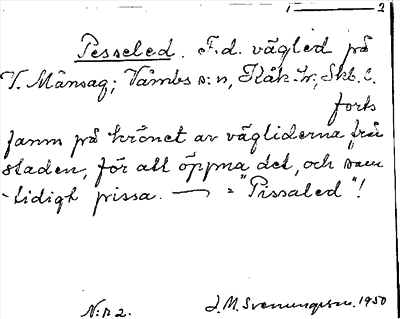 1 — 2
Pesseled. F.d. vägled på
V. Månsag; Våmbs s:n, Kåk. hr, Skb. l.
forts
fanns på krönet av vägliderna från
staden, för att öppna det, och sam
-tidigt pissa. — = "Pissaled"!
N:r 2. J.M. Svenungsson. 1950